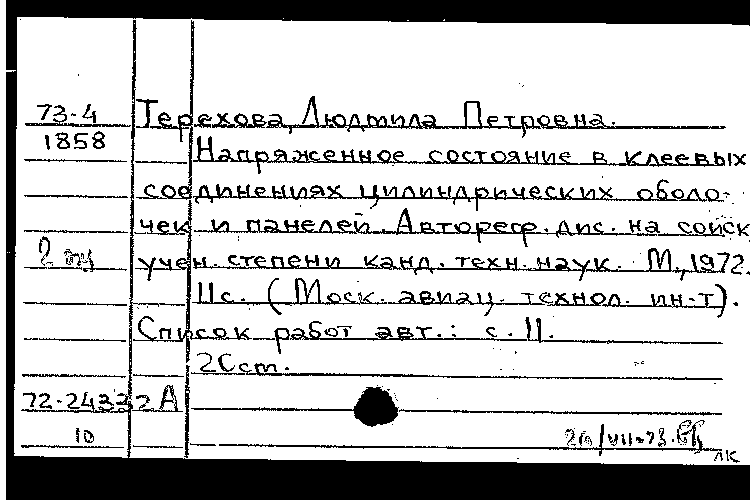 73-4 Терехова, Людмила Петровна.
1858 Напряженное состояние в клеевых
соединениях цилиндрических оболо-
чек и панелей. Автореф. дис. на соиск
учен. степени канд. техн. наук. М., 1972.
11с. (Моск. авиац. технол. ин-т).
Список работ авт.: с. 11.
20см.
72-24332 А
10
ЛК